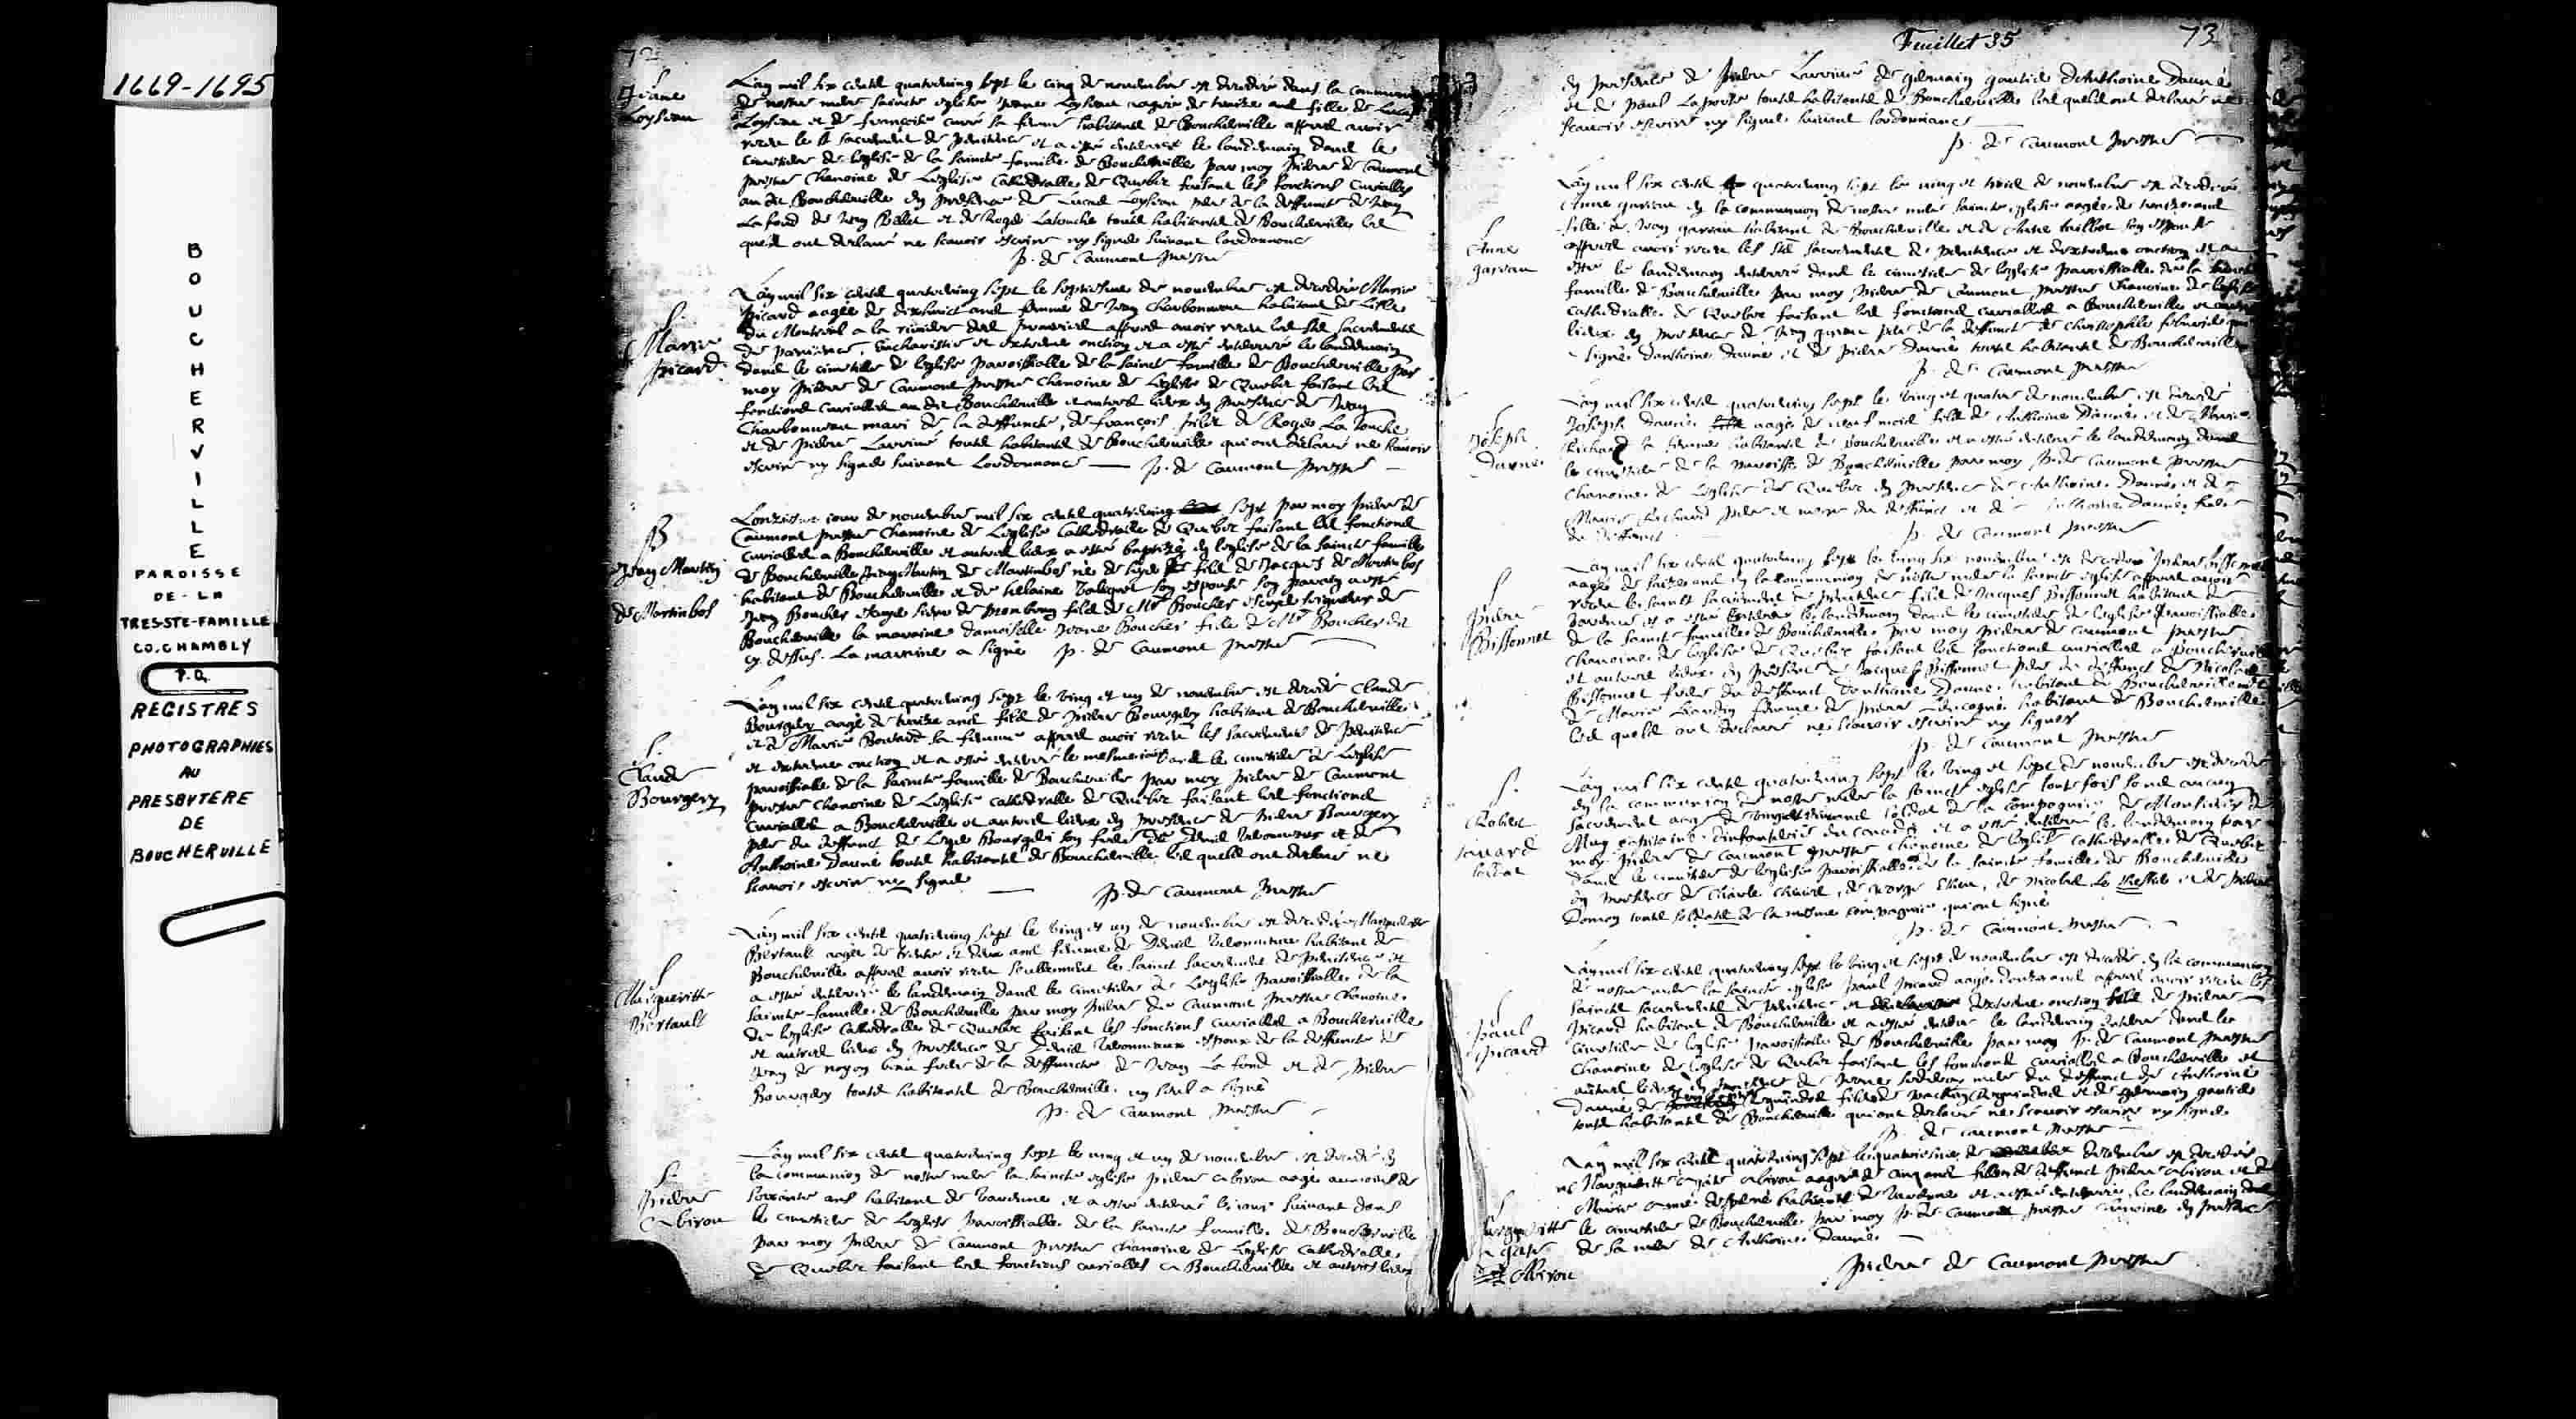 1669-1695
BOUCHERVILLE
PAROISSE
DE-LA
TRES-STE-FAMILLE
CO. CHAMBLY
P.Q.
REGISTRES
PHOTOGRAPHIES
AU
PRESBYTERE
DE
BOUCHERVILLE
72
S
Jeane
Loyseau
L'an mil six cents quatreving sept le cinq de novembre est decedée dans la communion
de nostre mere saincte eglise Jeane Loyseau aagée de treize ans fille de Lucas
Loyseau et de françoise curé sa femme habitants de Boucherville apprès avoir
receu le St sacrement de penitence et a esté enterrée le landemain dans le
cimetiere de leglise de la saincte famille de Boucherville par moy pierre de Caumont
prestre chanoine de Leglise Cathedralle de Quebec faisant les fonctions curialles
au dit Boucherville en presence de Lucas Loyseau pere de la deffuncte de Jean
La fond de Jean et de Roge Latouche touts habitants de Boucherville les
quels ont declaré ne scavoir escrire ny signer suivant lordonnance
p. de Caumont prestre
S.
Marie
picard
L'an mil six cents quatreving sept le septiesme de novembre est decedée Marie
Picard aagée de dixhuict ans femme de Jean Charbonneau habitant de Lisle
du Montreal a la riviere des prairies apprès avoir receu les Sts sacrements
de penitence, Eucharistie et extreme onction et a esté enterrée le landemain
dans le cimetiere de leglise paroissialle de la saincte famille de Boucherville par
moy pierre de Caumont prestre chanoine de Leglise de Quebec faisant les
fonctions curialles au dit Boucherville et autres lieux en presence de Jean
Charbonneau mari de la deffuncte, de françois de Roge La touche
et de pierre touts habitants de Boucherville qui ont declaré ne scavoir
escrire ny signer suivant Lordonnance — p. de Caumont prestre
B
Jean Martin
de Martinbos
Lonziesme jour de novembre mil six cents quatreving sept par moy pierre de
Caumont prestre chanoine de Leglise Cathedralle de Quebec faisant les fonctions
curialles a Boucherville et autres lieux a esté baptizé en leglise de la saincte famille
de Boucherville Jean Martin de Martinbos né de fils de Jacques de Martinbos
habitant de Boucherville et de helaine son espouse son parain a esté
Jean Boucher escuyer sieur de fils de Mr Boucher escuyer seigneur de
Boucherville la maraine damoiselle Jeane Boucher fille de Mr Boucher dit
cy dessus. La maraine a signé p. de Caumont prestre
S.
Claude
Bourgery
L'an mil six cents quatreving sept le ving et un de novembre est decedé Claude
Bourgery aagé de treize ans fils de pierre Bourgery habitant de Boucherville
et de Marie Boutard sa femme apprès avoir receu les sacrements de penitence
et extreme onction et a esté enterré le mesme jour dans le cimetiere de Leglise
paroissialle de la saincte famille de Boucherville par moy pierre de Caumont
prestre chanoine de Leglise cathedralle de Quebec faisant les fonctions
curialles a Boucherville et autres lieux en presence de pierre Bourgery
pere du deffunct de Bourgery son frere de Denis et de
Anthoine Daunée touts habitants de Boucherville les quels ont declaré ne
scavoir escrire ny signer
p. de Caumont prestre
S
Marguerite
Bertault
L'an mil six cents quatreving sept le ving et un de novembre est decedée Marguerite
Bertault aagée de trente et deux ans femme de Denis habitant de
Boucherville apprès avoir receu seullement le sainct sacrement de penitence et
a esté enterrée le landemain dans le cimetiere de Leglise paroissialle de la
saincte famille de Boucherville par moy pierre de Caumont prestre chanoine
de leglise Cathedralle de Quebec faisant les fonctions curialles a Boucherville
et autres lieux en presence de Denis espoux de la deffuncte de
Jean de noyon beau frere de la deffuncte de Jean La fond et de pierre
Bourgery touts habitants de Boucherville. un seul a signé
p. de Caumont prestre
S.
pierre
Abirou
L'an mil six cents quatreving sept le ving et un de novembre est decedé en
la communion de nostre mere la saincte eglise pierre abirou aagé au moins de
soixante ans habitant de Varenne et a esté enterré le jour suivant dans
le cimetiere de Leglise paroissialle de la saincte famille de Boucherville
par moy pierre de Caumont prestre chanoine de Leglise cathedralle
de Quebec faisant les fonctions curialles a Boucherville et autres lieux
Feuillet 35
73
en presence de pierre de germain gautier d'Anthoine Daunée
et de paul Laporte touts habitants de Boucherville les quels ont declaré ne
scavoir escrire ny signer suivant lordonnance
p. de Caumont prestre
S
Anne
gareau
L'an mil six cents quatreving sept le ving et trois de novembre est decedée
Anne gareau en la communion de nostre mere saincte eglise aagée de treize ans
fille de Jean gareau habitant de Boucherville et de Anne taillbot son espouse
apprès avoir receu les Sts sacrements de penitence et d'extreme onction et a
esté le landemain enterrée dans le cimetiere de leglise paroissialle de la saincte
famille de Boucherville par moy pierre de Caumont prestre chanoine de leglise
cathedralle de Quebec faisant les fonctions curialles a Boucherville et autres
lieux en presence de Jean gareau pere de la deffuncte de Christophle qui
signé d'anthoine daunée et de pierre Daunée touts habitants de Boucherville
p. de Caumont prestre
S
Joseph
daunée
L'an mil six cents quatreving sept le ving et quatre de novembre est decedé
Joseph Daunée aagé de neuf mois fils de Anthoine Daunée et de Marie
Richard sa femme habitants de Boucherville et a esté enterré le landemain dans
le cimetiere de la paroisse de Boucherville par moy p. de Caumont prestre
chanoine de leglise de Quebec en presence de Anthoine Daunée et de
Marie Richard pere et mere du deffunct et de Anthoine Daunée frere
du deffunct
p. de Caumont prestre
S
pierre
Bissonnet
L'an mil six cents quatreving sept le ving six novembre est decedé pierre bissonnet
aagé de seize ans en la communion de nostre mere la saincte eglise apprès avoir
receu le sainct sacrement de penitence fils de Jacques bissonnet habitant de
varenne et a esté enterré le landemain dans le cimetiere de leglise paroissialle
de la saincte famille de Boucherville par moy pierre de Caumont prestre
chanoine de leglise de Quebec faisant les fonctions curialles a Boucherville
et autres lieux en presence de Jacques Bissonnet pere du deffunct de Nicolas
Bissonnet frere du deffunct d'anthoine Daunée habitant de Boucherville et
de Marie femme de pierre habitant de Boucherville
les quels ont declaré ne scavoir escrire ny signer
p. de Caumont prestre
S.
Robert
soldat
L'an mil six cents quatreving sept le ving et sept de novembre est decedé
en la communion de nostre mere la saincte eglise toutefois sans aucun
sacrement aagé de soldat de la compagnie de Monsieur de
Muy capitaine d'infanterie du canada et a esté enterré le landemain par
moy pierre de Caumont prestre chanoine de leglise cathedralle de Quebec
dans le cimetiere de leglise paroissialle de la saincte famille de Boucherville
en presence de Charle de George de Nicolas et de pierre
touts soldats de la mesme compagnie qui ont signé
p. de Caumont prestre
S
paul
picard
L'an mil six cents quatreving sept le ving et sept de novembre est decedé en la communion
de nostre mere la saincte eglise paul picard aagé d'onze ans apprès avoir receu les
saincts sacrements de penitence et d'extreme onction fils de pierre
picard habitant de Boucherville et a esté enterré le landemain dans le
cimetiere de leglise paroissialle de Boucherville par moy p. de Caumont prestre
chanoine de leglise de Quebec faisant les fonctions curialles a Boucherville et
autres lieux en presence de Jeane mere du deffunct de Anthoine
Daunée de et de germain gautier
touts habitants de Boucherville qui ont declaré ne scavoir escrire ny signer
p. de Caumont prestre
S
Marguerite
agate
Abirou
L'an mil six cents quatreving sept le quatriesme de decembre est decedée
Marguerite agate abirou aagée de cinq ans fille de deffunct pierre abirou et de
Marie habitants de Varenne et a esté enterrée le landemain dans
le cimetiere de Boucherville par moy p. de Caumont prestre chanoine en presence
de sa mere de Anthoine Daunée
pierre de Caumont prestre